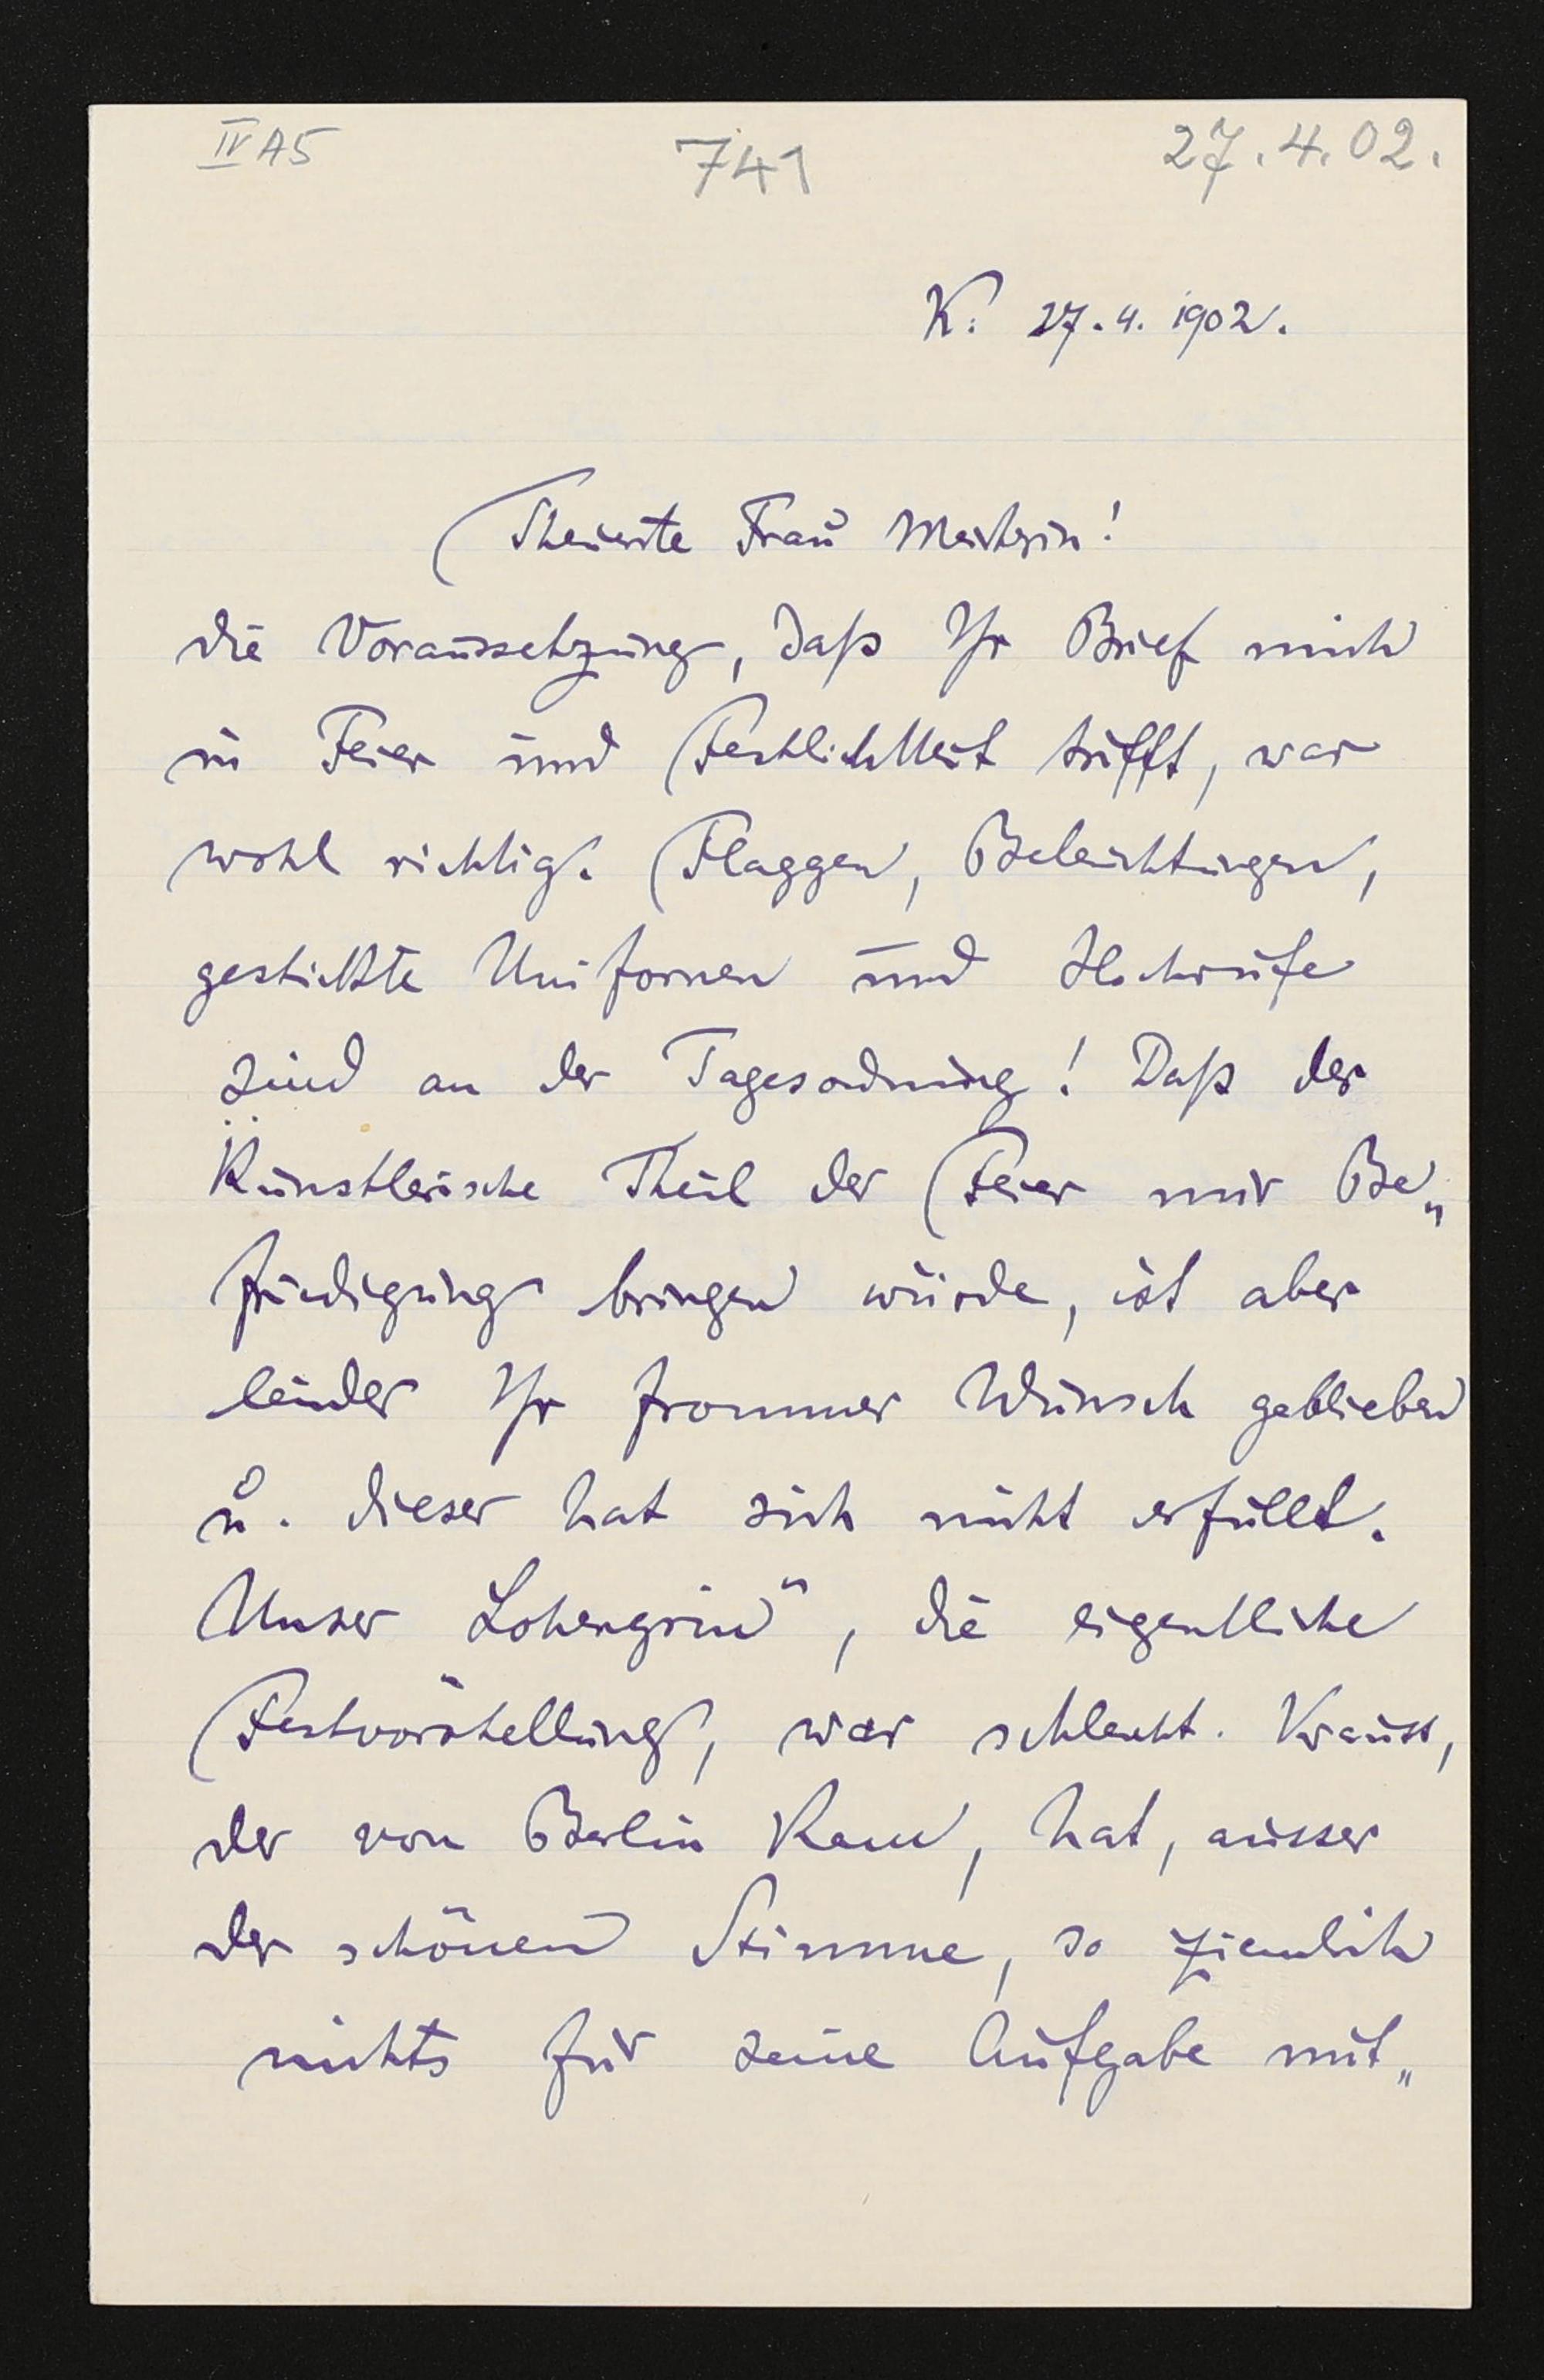 IV A5 741 27.4.02.
K. 27.4. 1902.
Theuerste Frau Meisterin!
die Voraussetzung, daß Ihr Brief mich
in Feier und Festlichkeit trifft, war
wohl richtig. Flaggen, Beleuchtungen,
gestickte Uniformen und Hochrufe
sind an der Tagesordnung! Daß der
künstlerische Theil der Feier mir Be„
friedigung bringen würde, ist aber
leider Ihr frommer Wunsch geblieben
u. dieser hat sich nicht erfüllt.
Unser Lohengrin", die eigentliche
Festvorstellung, war schlecht. Krauss,
der von Berlin kam, hat, ausser
der schönen Stimme, so ziemlich
nichts für seine Aufgabe mit„